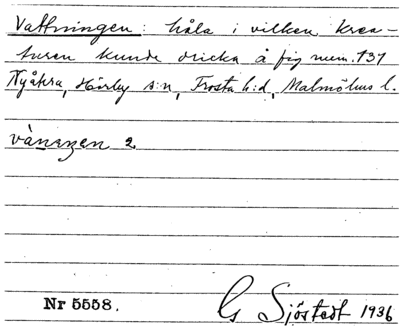 Vattningen: håla i vilken krea-
turen kunde dricka å fig num. 131
Nyåkra, Hörby s:n, Frosta h:d, Malmöhus l.
vànızen 2
Nr 5558.
Gs Sjöstedt 1936